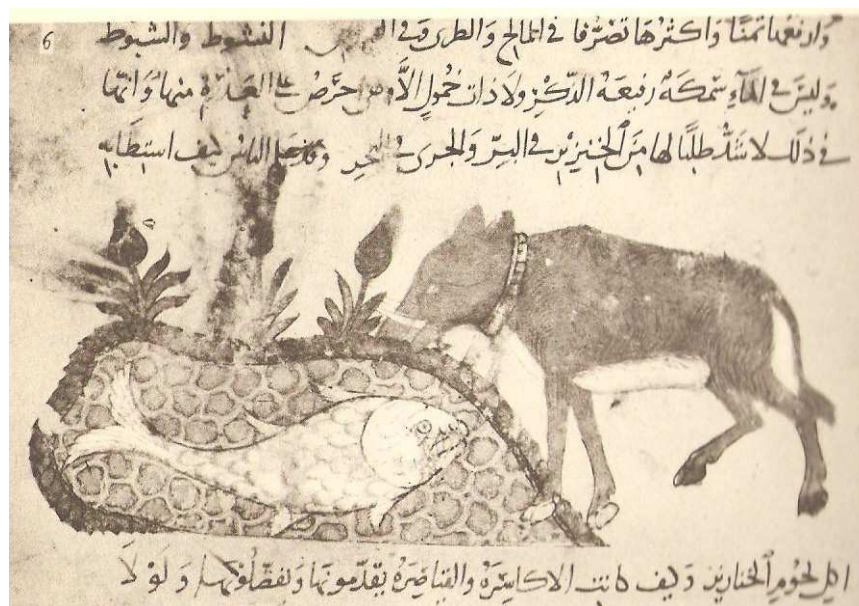 6
وارفعها ثمنًا وَاكثرُهَا تصَرُّفًا في المالح وَالطرى وَفي النشوط والشبوط
وَليسَ في المَآءِ سَمكَة رفيعَة الذكرِ ولا ذات خمُولٍ الَّا احرَص على العذرة منها وَانها
في ذلك لاشدُّ طلبًا لها مِنَ الخنزير في البَرِّ وَالجرى في البحر وقد الناس كيف استطابه
اكل لحُومِ الخنازير وَكيف كانت الاكاسِرَة والقيَاصِرَة يقدِّمونها وَيفضِّلونها وَلوْلا